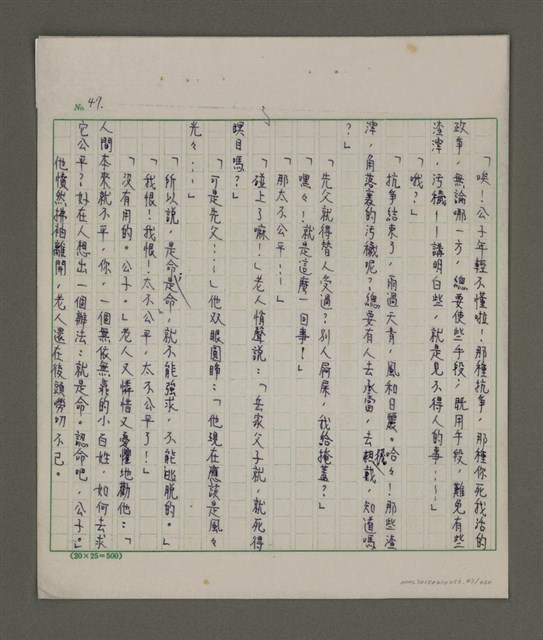 No. 47.
「唉！公子年輕不懂啦！那種抗爭，那種你死我活的
政爭，無論哪一方，總要使些手段；既用手段，難免有些
渣滓，汚穢！！講明白些，就是見不得人的事……」
「哦？」
「抗爭結束了，雨過天青，風和日麗。哈々！那些渣
滓，角落裏的汚穢呢？總要有人去承當，去揹載，知道嗎
？」
「先父就得替人受過？別人屙屎，我給掩蓋？」
「嘿々！就是這麼一回事！」
「那太不公平……」
「碰上了嘛！」老人悄聲說：「岳家父子就，就死得
瞑目嗎？」
「可是先父……」他双眼圓睜：「他現在應該是風々
光々……」
「所以說，是命是命，就不能強求，不能逃脫的。」
「我恨！我恨！太不公平，太不公平了！」
「沒有用的。公子。」老人又憐惜又憂懼地勸他：「
人間本來就不平，你，一個無依無靠的小百姓，如何去求
它公平？好在人想出一個辦法：就是命。認命吧，公子。」
他憤然拂袖離開，老人還在後頭勞叨不已。
(20×25=500)